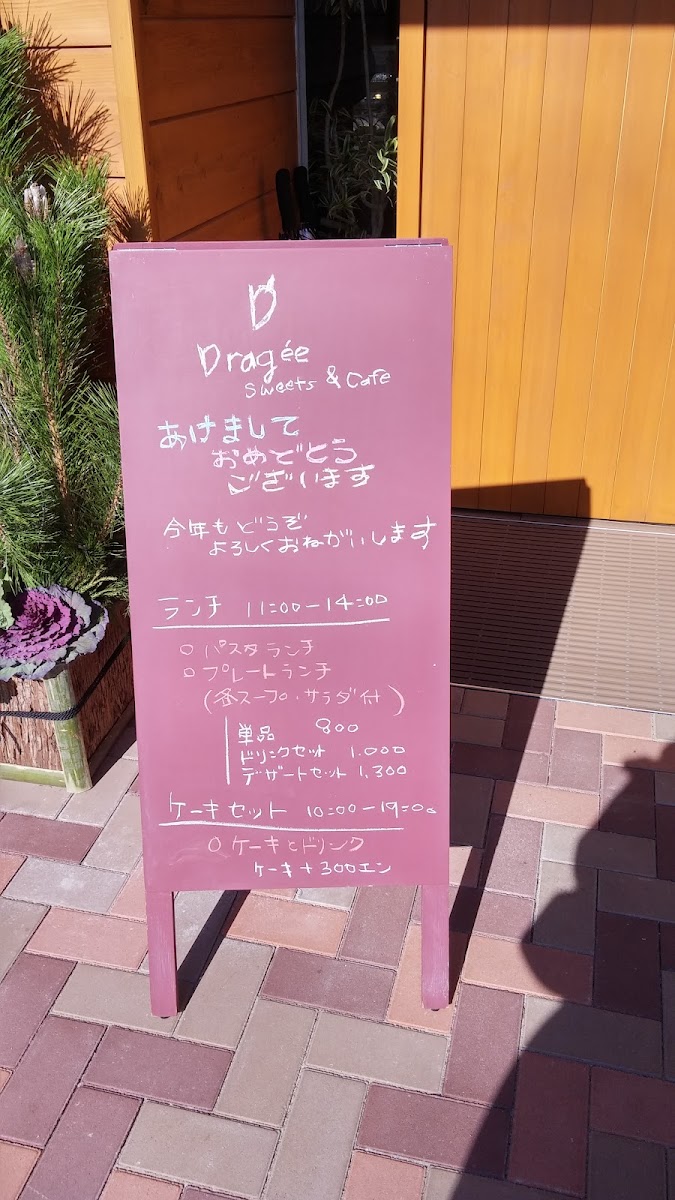 D
Dragée
Sweets & Cafe
あけまして
おめでとう
ございます
今年もどうぞ
よろしくおねがいします
ランチ 11:00-14:00
○ パスタランチ
○ プレートランチ
(各スープ・サラダ付)
単品 800
ドリンクセット 1.000
デザートセット 1,300
ケーキセット 10:00-19:00
○ ケーキとドリンク
ケーキ+300エン